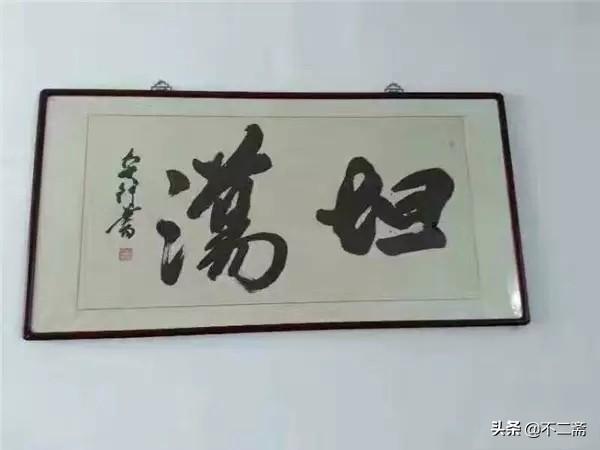 坦蕩
書
头条 @不二斋